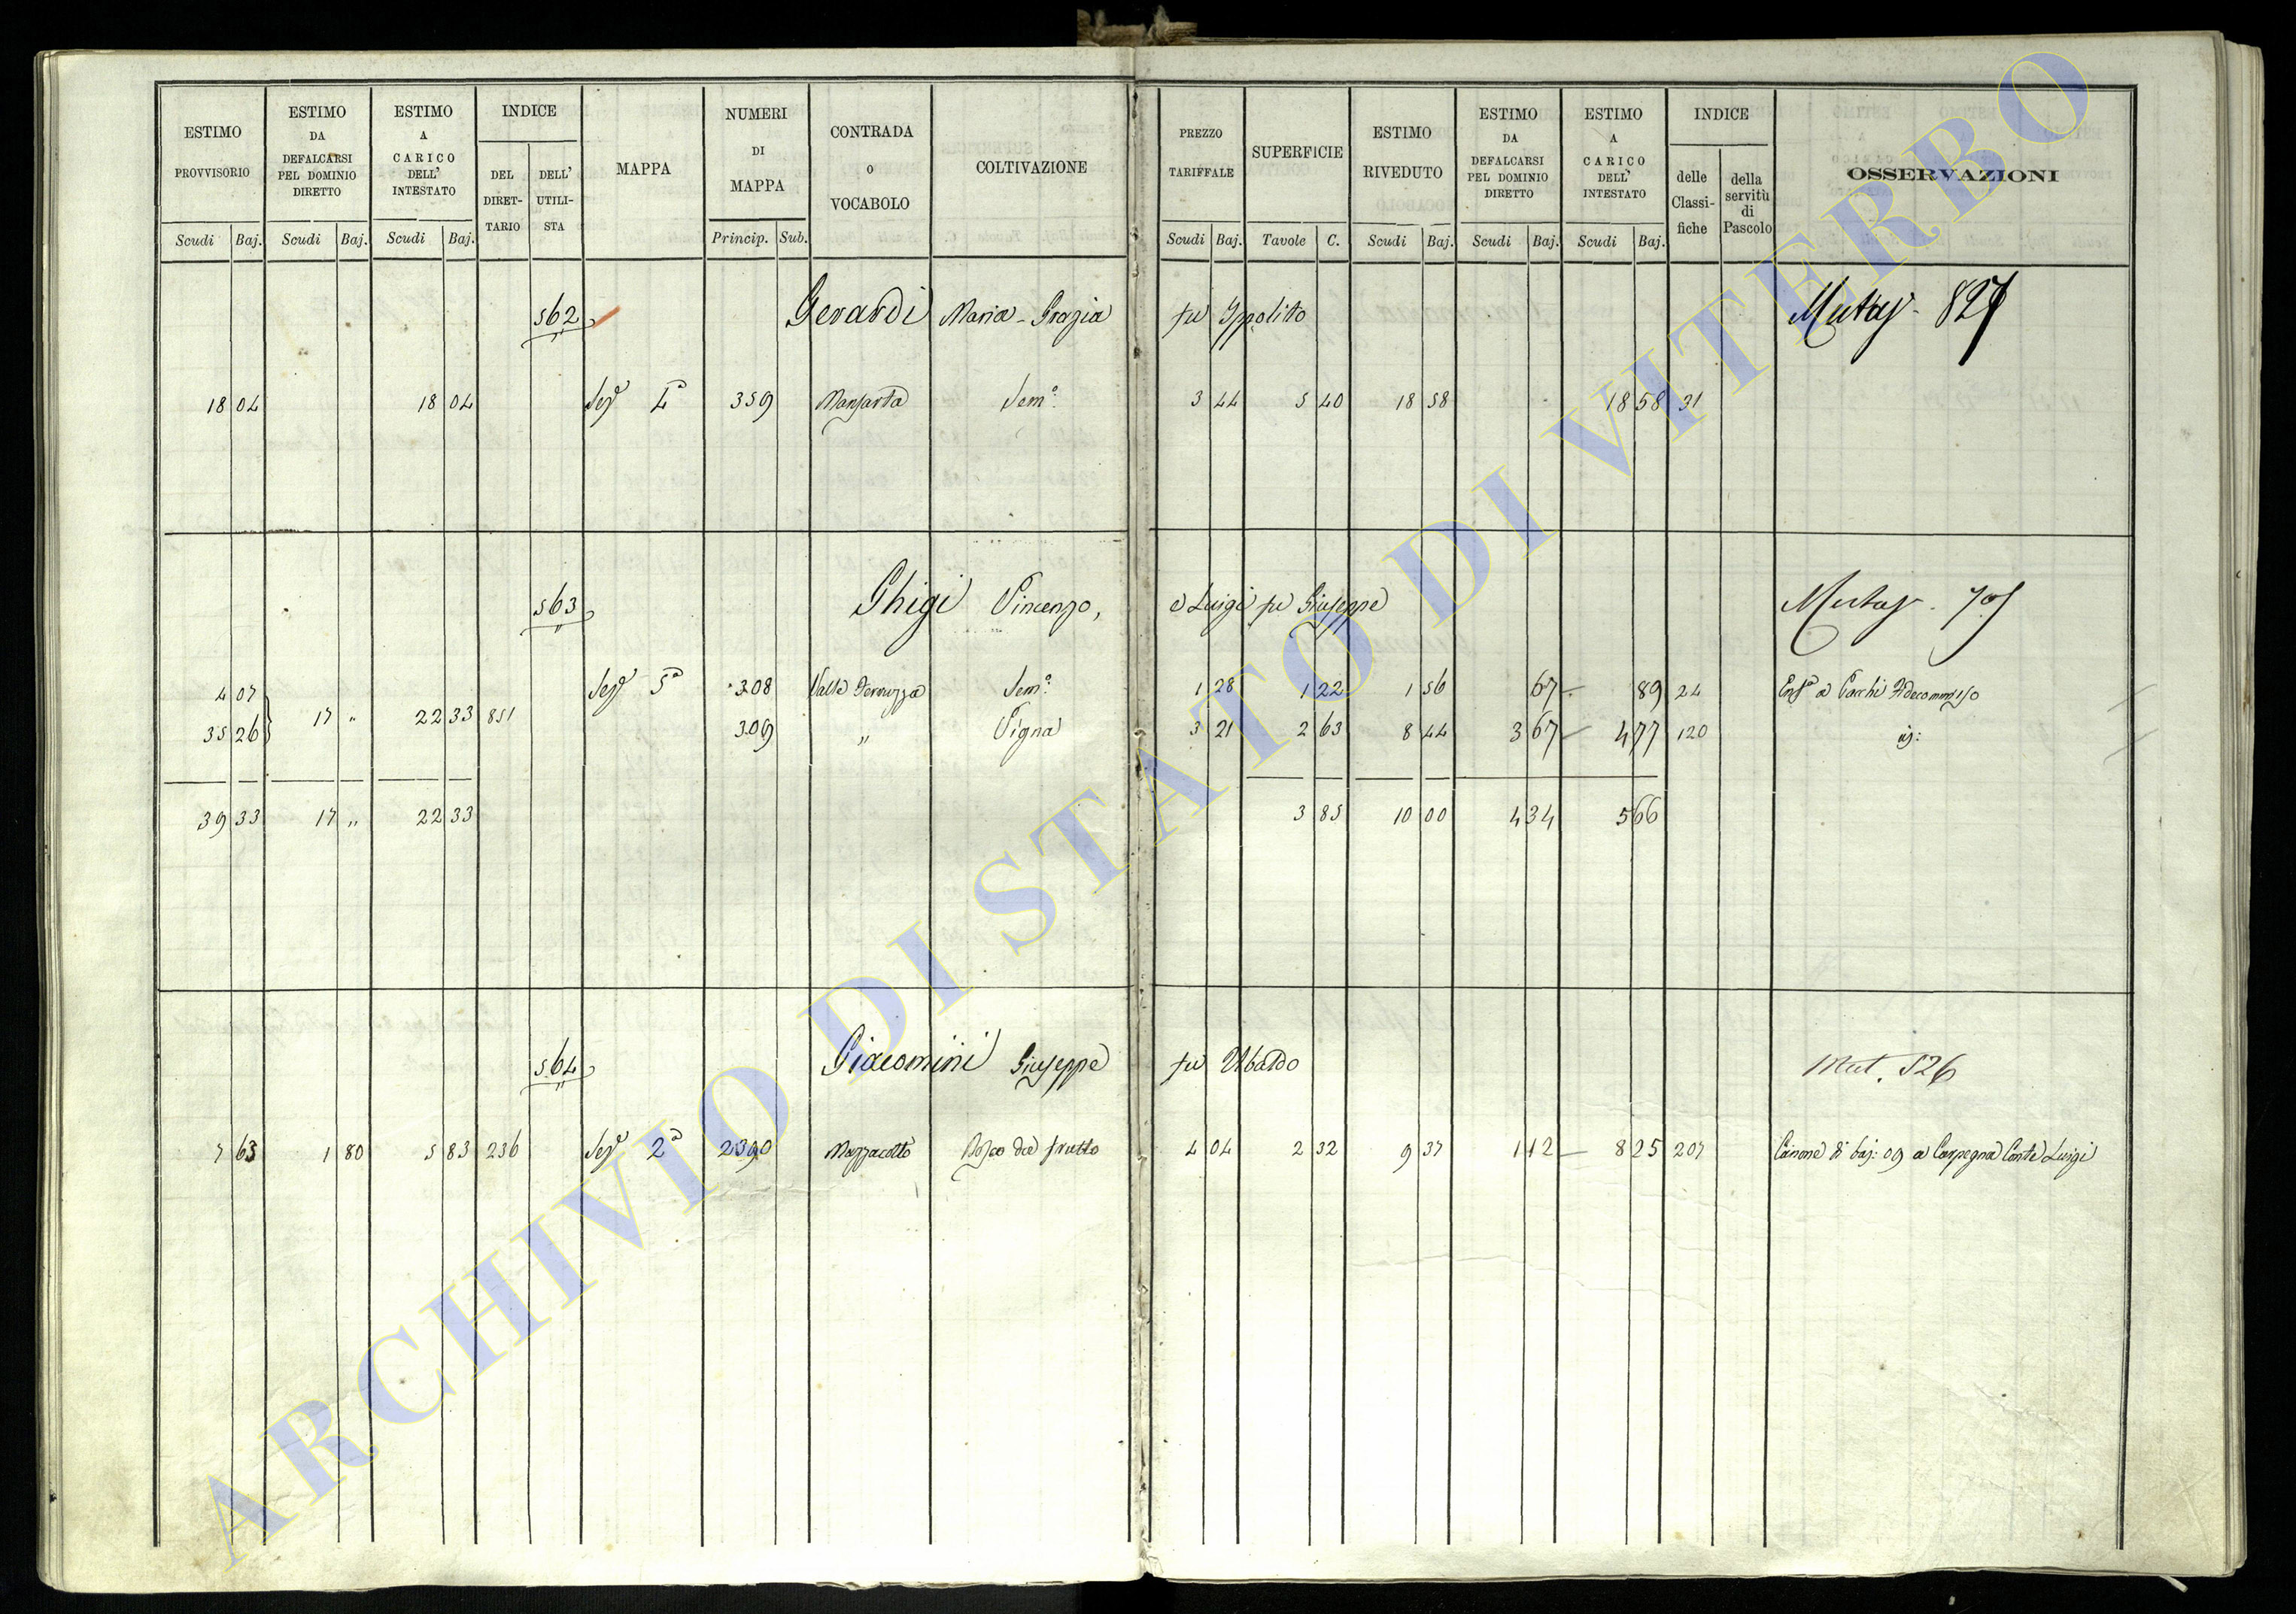 ESTIMO PROVVISORIO | ESTIMO DA DEFALCARSI PEL DOMINIO DIRETTO | ESTIMO A CARICO DELL' INTESTATO | INDICE | MAPPA | NUMERI DI MAPPA | CONTRADA O VOCABOLO | COLTIVAZIONE | PREZZO TARIFFALE | SUPERFICIE | ESTIMO RIVEDUTO | ESTIMO DA DEFALCARSI PEL DOMINIO DIRETTO | ESTIMO A CARICO DELL' INTESTATO | INDICE | OSSERVAZIONI
DEL DIRET-TARIO | DELL' UTILI-STA | delle Classi-fiche | della servitù di Pascolo
Scudi | Baj. | Scudi | Baj. | Scudi | Baj. | Princip. | Sub. | Scudi | Baj. | Tavole | C. | Scudi | Baj. | Scudi | Baj. | Scudi | Baj.
562 Gerardi Maria-Grazia fu Ippolito 827
18 04 18 04 4ª 359 Sem.º 3 44 5 40 18 58 18 58 31
563 Ghigi Vincenzo, e Luigi fu Giuseppe
4 07 5ª 308 Valle Sem.º 1 28 1 22 1 56 67 89 24
35 26 17 " 22 33 851 309 " Vigna 3 21 2 63 8 44 3 67 4 77 120
39 33 17 " 22 33 3 85 10 00 4 34 5 66
564 Giacomini Giuseppe fu Ubaldo Mut. 526
7 63 1 80 5 83 236 2ª 2390 Mazzacotto Bosco da frutto 4 04 2 32 9 37 1 12 8 25 207 Canone di baj: 09 a Carpegna Conte Luigi
ARCHIVIO DI STATO DI VITERBO